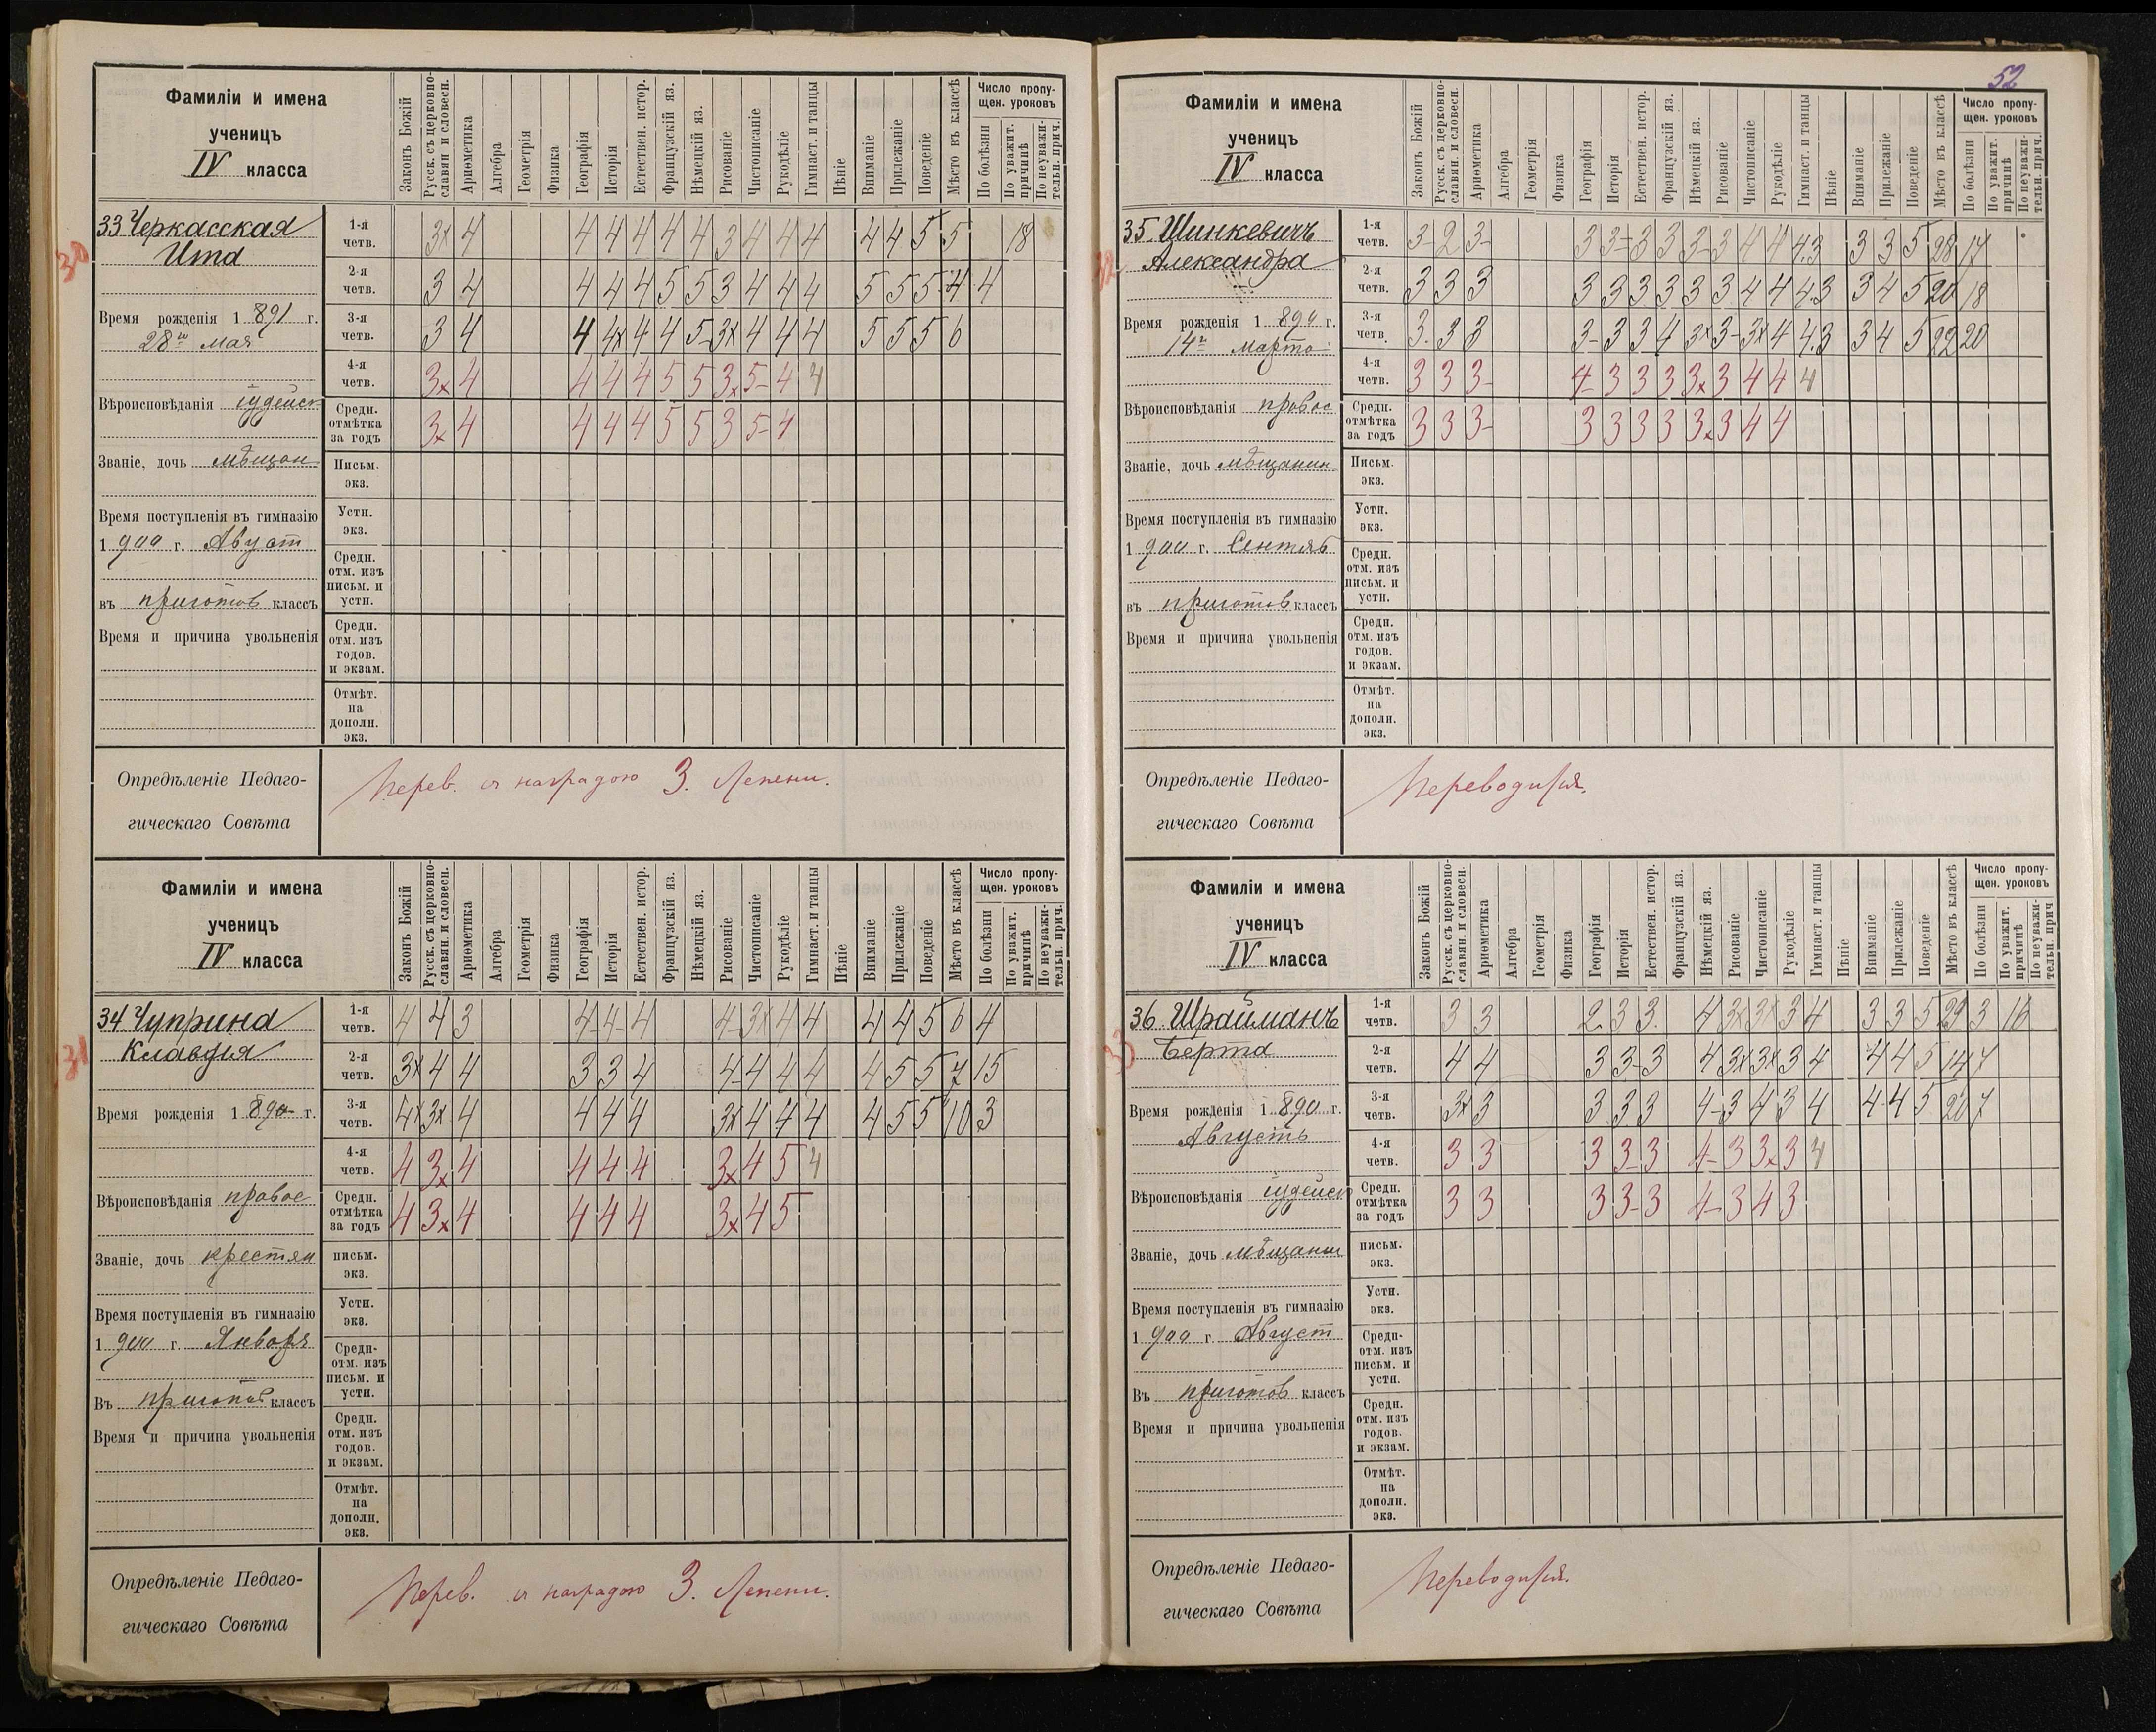 52
Фамиліи и имена
ученицъ
IV класса
Законъ Божій
Русск. съ церковно-
славян. и словесн.
Ариѳметика
Алгебра
Геометрія
Физика
Географія
Исторія
Естествен. истор.
Французскій яз.
Нѣмецкій яз.
Рисованіе
Чистописаніе
Рукодѣліе
Гимнаст. и танцы
Пѣніе
Вниманіе
Прилежаніе
Поведеніе
Мѣсто въ классѣ
Число пропу-
щен. уроковъ
По болѣзни
По уважит.
причинѣ
По неуважи-
тельн. прич.
30
33 Черкасская
Ита
Время рожденія 1 891 г.
28го мая
Вѣроисповѣданія іудейск
Званіе, дочь мѣщан
Время поступленія въ гимназію
1 900 г. Август
въ приготов классъ
Время и причина увольненія
1-я четв. 3x 4 4 4 4 4 4 3 4 4 4 4 4 5 5 18
2-я четв. 3 4 4 4 4 5 5 3 4 4 4 5 5 5 4 4
3-я четв. 3 4 4 4x 4 4 5- 3x 4 4 4 5 5 5 6
4-я четв. 3x 4 4 4 4 5 5 3x 5- 4 4
Средн. отмѣтка за годъ 3x 4 4 4 4 5 5 3 5- 4
Письм.
экз.
Устн.
экз.
Средн.
отм. изъ
письм. и
устн.
Средн.
отм. изъ
годов.
и экзам.
Отмѣт.
на
дополн.
экз.
Опредѣленіе Педаго-
гическаго Совѣта
Перев. съ наградою 3. степени.
Фамиліи и имена
ученицъ
IV класса
Законъ Божій
Русск. съ церковно-
славян. и словесн.
Ариѳметика
Алгебра
Геометрія
Физика
Географія
Исторія
Естествен. истор.
Французскій яз.
Нѣмецкій яз.
Рисованіе
Чистописаніе
Рукодѣліе
Гимнаст. и танцы
Пѣніе
Вниманіе
Прилежаніе
Поведеніе
Мѣсто въ классѣ
Число пропу-
щен. уроковъ
По болѣзни
По уважит.
причинѣ
По неуважи-
тельн. прич.
31
34 Чуприна
Клавдия
Время рожденія 1 890 г.
Вѣроисповѣданія правос
Званіе, дочь крестян
Время поступленія въ гимназію
1 900 г. Января
Въ приготов классъ
Время и причина увольненія
1-я четв. 4 4 3 4- 4 4 4- 3x 4 4 4 4 5 6 4
2-я четв. 3x 4 4 3 3 4 4- 4 4 4 4 5 5 7 15
3-я четв. 4x 3x 4 4 4 4 3x 4 4 4 4 5 5 10 3
4-я четв. 4 3x 4 4 4 4 3x 4 5 4
Средн. отмѣтка за годъ 4 3x 4 4 4 4 3x 4 5
письм.
экз.
Устн.
экз.
Средн-
отм. изъ
письм. и
устн.
Средн.
отм. изъ
годов.
и экзам.
Отмѣт.
на
дополн.
экз.
Опредѣленіе Педаго-
гическаго Совѣта
Перев. съ наградою 3. степени.
Фамиліи и имена
ученицъ
IV класса
Законъ Божій
Русск. съ церковно-
славян. и словесн.
Ариѳметика
Алгебра
Геометрія
Физика
Географія
Исторія
Естествен. истор.
Французскій яз.
Нѣмецкій яз.
Рисованіе
Чистописаніе
Рукодѣліе
Гимнаст. и танцы
Пѣніе
Вниманіе
Прилежаніе
Поведеніе
Мѣсто въ классѣ
Число пропу-
щен. уроковъ
По болѣзни
По уважит.
причинѣ
По неуважи-
тельн. прич.
35 Шинкевичъ
Александра
Время рожденія 1 890 г.
14го марта
Вѣроисповѣданія правос
Званіе, дочь мѣщанин
Время поступленія въ гимназію
1 900 г. Сентяб
въ приготов классъ
Время и причина увольненія
1-я четв. 3- 2 3- 3 3- 3 3 3- 3 4 4 4.3 3 3 5 28 17
2-я четв. 3 3 3 3 3 3 3 3 3 4 4 4.3 3 4 5 20 18
3-я четв. 3. 3 3 3- 3 3 4 3x 3- 3x 4 4.3 3 4 5 22 20
4-я четв. 3 3 3- 4- 3 3 3 3x 3 4 4 4
Средн. отмѣтка за годъ 3 3 3- 3 3 3 3 3x 3 4 4
Письм.
экз.
Устн.
экз.
Средн.
отм. изъ
письм. и
устн.
Средн.
отм. изъ
годов.
и экзам.
Отмѣт.
на
дополн.
экз.
Опредѣленіе Педаго-
гическаго Совѣта
Переводится.
Фамиліи и имена
ученицъ
IV класса
Законъ Божій
Русск. съ церковно-
славян. и словесн.
Ариѳметика
Алгебра
Геометрія
Физика
Географія
Исторія
Естествен. истор.
Французскій яз.
Нѣмецкій яз.
Рисованіе
Чистописаніе
Рукодѣліе
Гимнаст. и танцы
Пѣніе
Вниманіе
Прилежаніе
Поведеніе
Мѣсто въ классѣ
Число пропу-
щен. уроковъ
По болѣзни
По уважит.
причинѣ
По неуважи-
тельн. прич
33
36 Шрайманъ
Берта
Время рожденія 1 890 г.
Августъ
Вѣроисповѣданія іудейск
Званіе, дочь мѣщанин
Время поступленія въ гимназію
1 900 г. Август
Въ приготов классъ
Время и причина увольненія
1-я четв. 3 3 2 3 3 4 3x 3x 3 4 3 3 5 29 3 16
2-я четв. 4 4 3 3- 3 4 3x 3x 3 4 4 4 5 14 7
3-я четв. 3x 3 3 3 3 4- 3 4 3 4 4 4 5 20 7
4-я четв. 3 3 3 3- 3 4- 3 3x 3 4
Средн. отмѣтка за годъ 3 3 3 3- 3 4- 3 4 3
письм.
экз.
Устн.
экз.
Средн-
отм. изъ
письм. и
устн.
Средн.
отм. изъ
годов.
и экзам.
Отмѣт.
на
дополн.
экз.
Опредѣленіе Педаго-
гическаго Совѣта
Переводится.